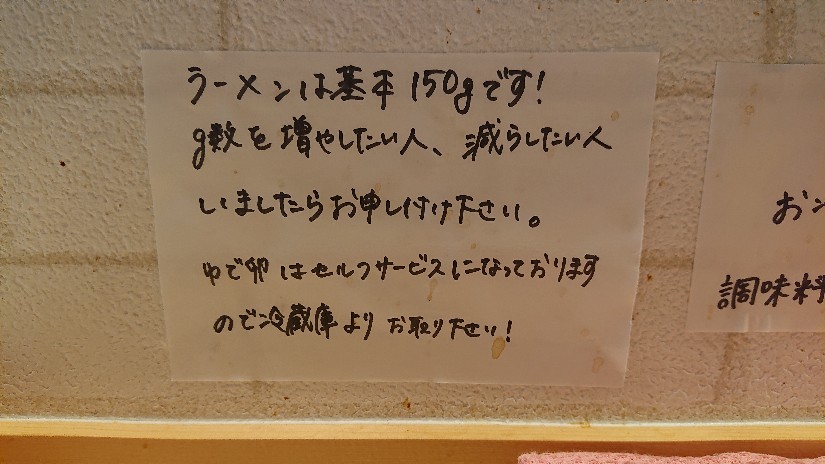 ラーメンは基本150gです!
g数を増やしたい人、減らしたい人
いましたらお申し付け下さい。
ゆで卵はセルフサービスになっております
ので冷蔵庫よりお取り下さい!
お
調味料